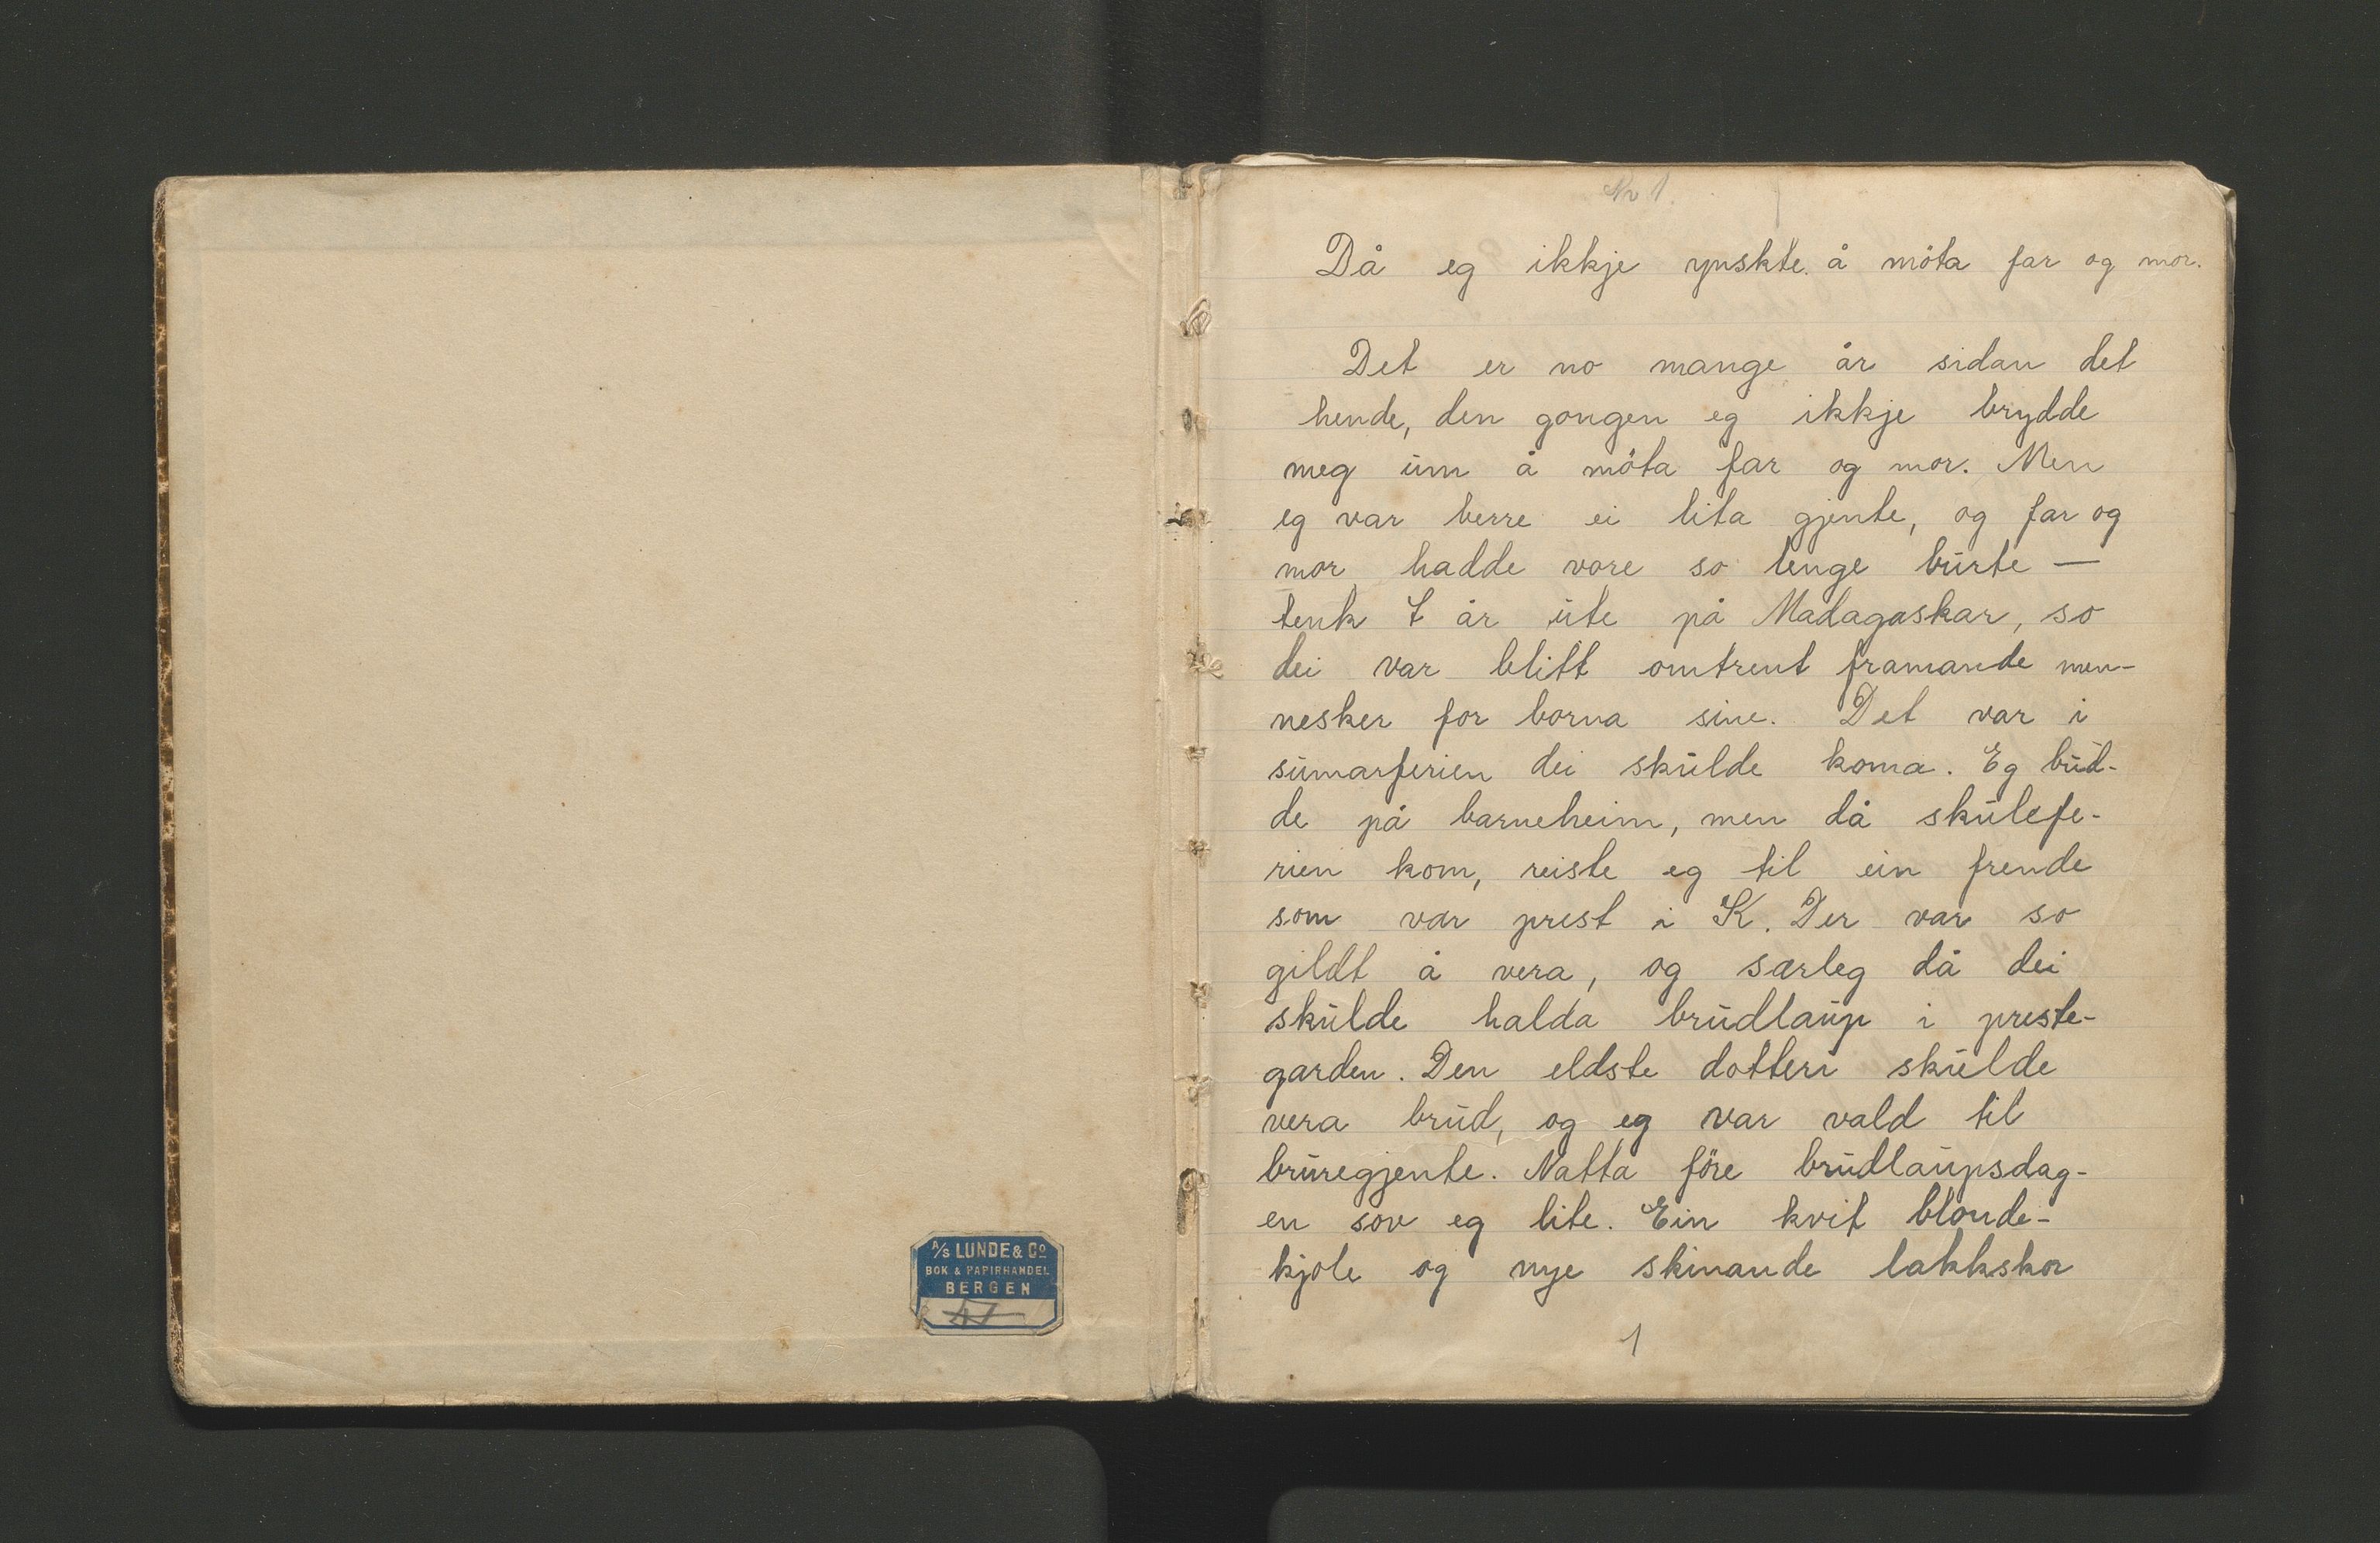 A/S LUNDE & Co
BOK & PAPIRHANDEL
BERGEN
Nr 1.
Då eg ikkje ynskte å möta far og mor.
Det er no mange år sidan det
hende, den gongen eg ikkje brydde
meg um å möta far og mor. Men
eg var berre ei lita gjente, og far og
mor hadde vore so lenge burte —
tenk 7 år ute på Madagaskar, so
dei var blitt omtrent framande men-
nesker for borna sine. Det var i
sumarferien dei skulde koma. Eg bud-
de på barneheim, men då skulefe-
rien kom, reiste eg til ein frende
som var prest i K. Der var so
gildt å vera, og særleg då dei
skulde halda brudlaup i preste-
garden. Den eldste dotteri skulde
vera brud, og eg var vald til
bruregjente. Natta före brudlaupsdag-
en sov eg lite. Ein kvit blonde-
kjole og nye skinande lakksko
1